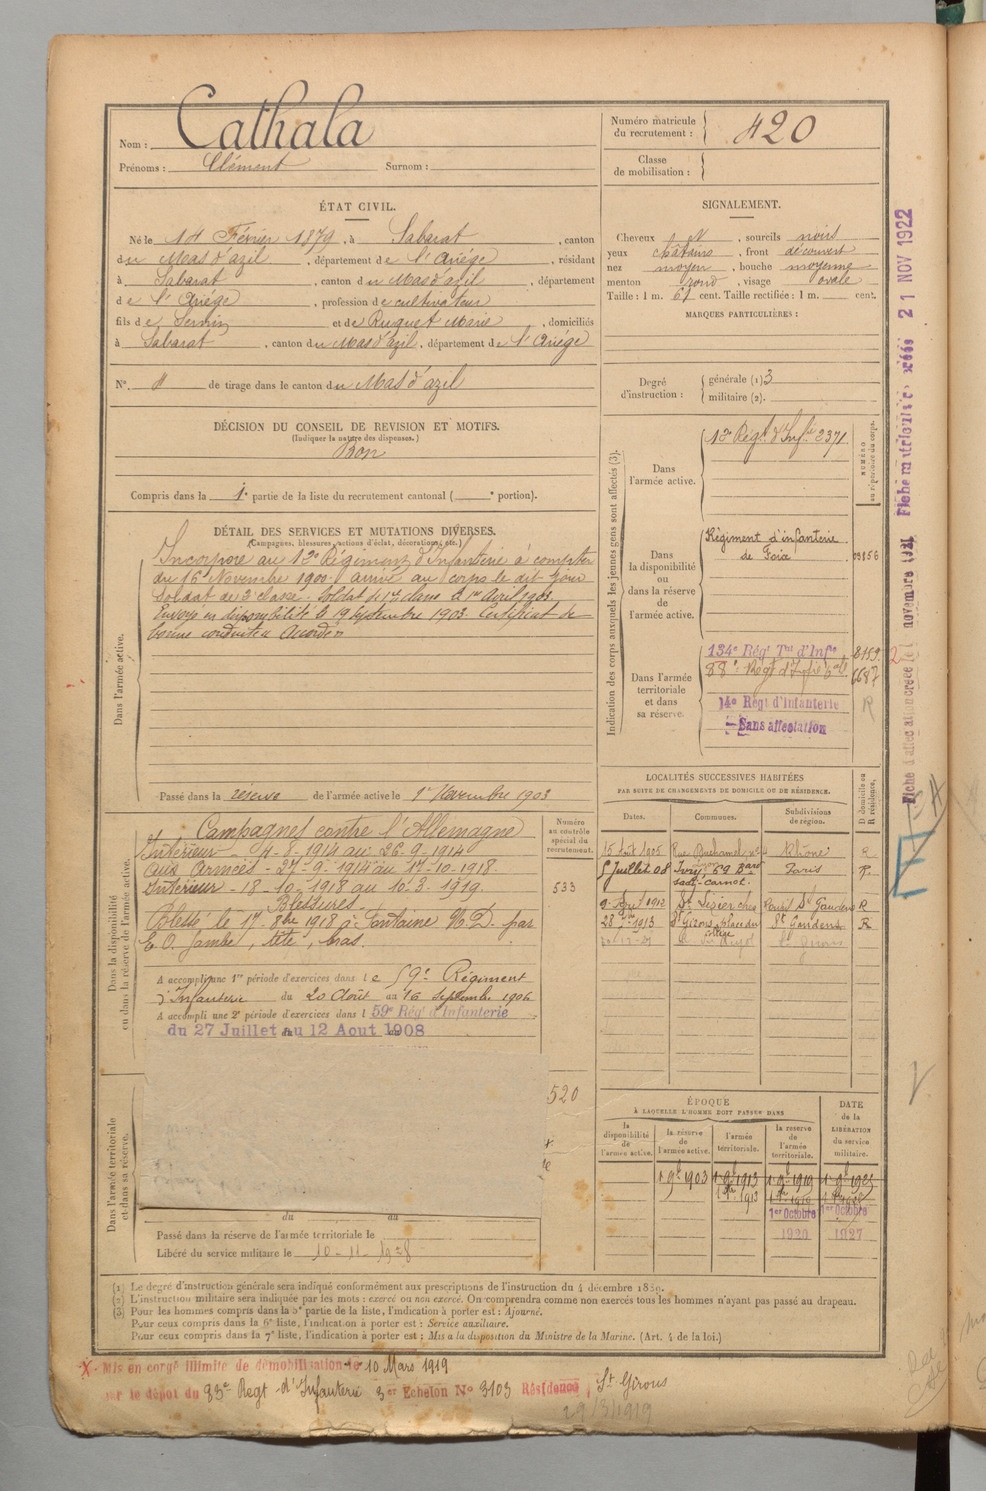 Nom : Cathala
Prénoms : Clément Surnom :
Numéro matricule
du recrutement : 420
Classe
de mobilisation :
ÉTAT CIVIL.
Né le 14 Février 1879, à Sabarat, canton
du Mas d'azil, département de l'Ariège, résidant
à Sabarat, canton du Mas d'azil, département
de l'Ariège, profession de cultivateur
fils de Sernin et de Ruquet Marie, domiciliés
à Sabarat, canton du Mas d'azil, département de l'Ariège
N°. de tirage dans le canton du Mas d'azil
SIGNALEMENT.
Cheveux N, sourcils noirs
yeux châtains, front découvert
nez moyen, bouche moyenne
menton rond, visage ovale
Taille : 1 m. 61 cent. Taille rectifiée : 1 m. cent.
MARQUES PARTICULIÈRES :
Degré
d'instruction :
générale (1) 3
militaire (2).
DÉCISION DU CONSEIL DE REVISION ET MOTIFS.
(Indiquer la nature des dispenses.)
Bon
Compris dans la 1e partie de la liste du recrutement cantonal ( e portion).
DÉTAIL DES SERVICES ET MUTATIONS DIVERSES.
(Campagnes, blessures, actions d'éclat, décorations, etc.)
Dans l'armée active.
Incorporé au 12e Régiment d'Infanterie à compter
du 16 Novembre 1900 arrivé au corps le dit jour
Soldat de 2e classe. Soldat de 1re classe le 1er Avril 1903.
Envoyé en disponibilité le 19 Septembre 1903. Certificat de
bonne conduite Accordé
Passé dans la réserve de l'armée active le 1er Novembre 1903
Indication des corps auxquels les jeunes gens sont affectés (3).
NUMÉRO
au répertoire du corps.
Dans
l'armée active.
12e Régt. d'Infie 2371
Dans
la disponibilité
ou
dans la réserve
de
l'armée active.
Régiment d'infanterie
de Foix
03856
Dans l'armée
territoriale
et dans
sa réserve.
134e Régt Tal d'Infie 8159
88e Régt d'Infie 6687
14e Régt d'Infanterie R
Sans affectation
Fiche matricule créée 21 NOV 1922
Fiche d'affectation créée le novembre 1921
Dans la disponibilité
ou dans la réserve de l'armée active.
Campagnes contre l'Allemagne
Intérieur - 4-8-1914 au 26-9-1914
aux Armées - 27-9-1914 au 17-10-1918.
Intérieur - 18-10-1918 au 10-3-1919.
Blessures.
Blessé le 17 8bre 1918 à Fontaine N.D. par
E.O. Jambe, tête, bras.
A accompli une 1re période d'exercices dans le 59e Régiment
d'Infanterie du 20 Août au 16 Septembre 1906
A accompli une 2e période d'exercices dans l 59e Régt d'Infanterie
du 27 Juillet au 12 Aout 1908
Numéro
au contrôle
spécial du
recrutement.
533
520
LOCALITÉS SUCCESSIVES HABITÉES
PAR SUITE DE CHANGEMENTS DE DOMICILE OU DE RÉSIDENCE.
Dates. Communes. Subdivisions
de région.
D domicile ou
R résidence.
15 Août 1905 Rhône R
5 Juillet 08 Ivry, 59 Bard Paris R
Sadi-Carnot.
9 1912 St Lizier St Gaudens R
28 1913 St Girons place du St Gaudens R
collège
St Girons
Dans l'armée territoriale
et dans sa réserve.
du au
Passé dans la réserve de l'armée territoriale le
Libéré du service militaire le 10-11-1928
ÉPOQUE
À LAQUELLE L'HOMME DOIT PASSER DANS
DATE
de la
LIBÉRATION
du service
militaire.
la
disponibilité
de
l'armée active.
la réserve
de
l'armée active.
l'armée
territoriale.
la réserve
de
l'armée
territoriale.
1 9b 1903 1 9b 1913 1 9b 1919 1 9b 1925
1er Octobre 1er Octobre
1920 1927
(1) Le degré d'instruction générale sera indiqué conformément aux prescriptions de l'instruction du 4 décembre 1889.
(2) L'instruction militaire sera indiquée par les mots : exercé ou non exercé. On comprendra comme non exercés tous les hommes n'ayant pas passé au drapeau.
(3) Pour les hommes compris dans la 5e partie de la liste, l'indication à porter est : Ajourné.
Pour ceux compris dans la 6e liste, l'indication à porter est : Service auxiliaire.
Pour ceux compris dans la 7e liste, l'indication à porter est : Mis à la disposition du Ministre de la Marine. (Art. 4 de la loi.)
X - Mis en congé illimité de démobilisation le 10 Mars 1919
par le dépot du 83e Regt d'Infanterie 3er Echelon No 3103 Résidence St Girons
29/3/1919